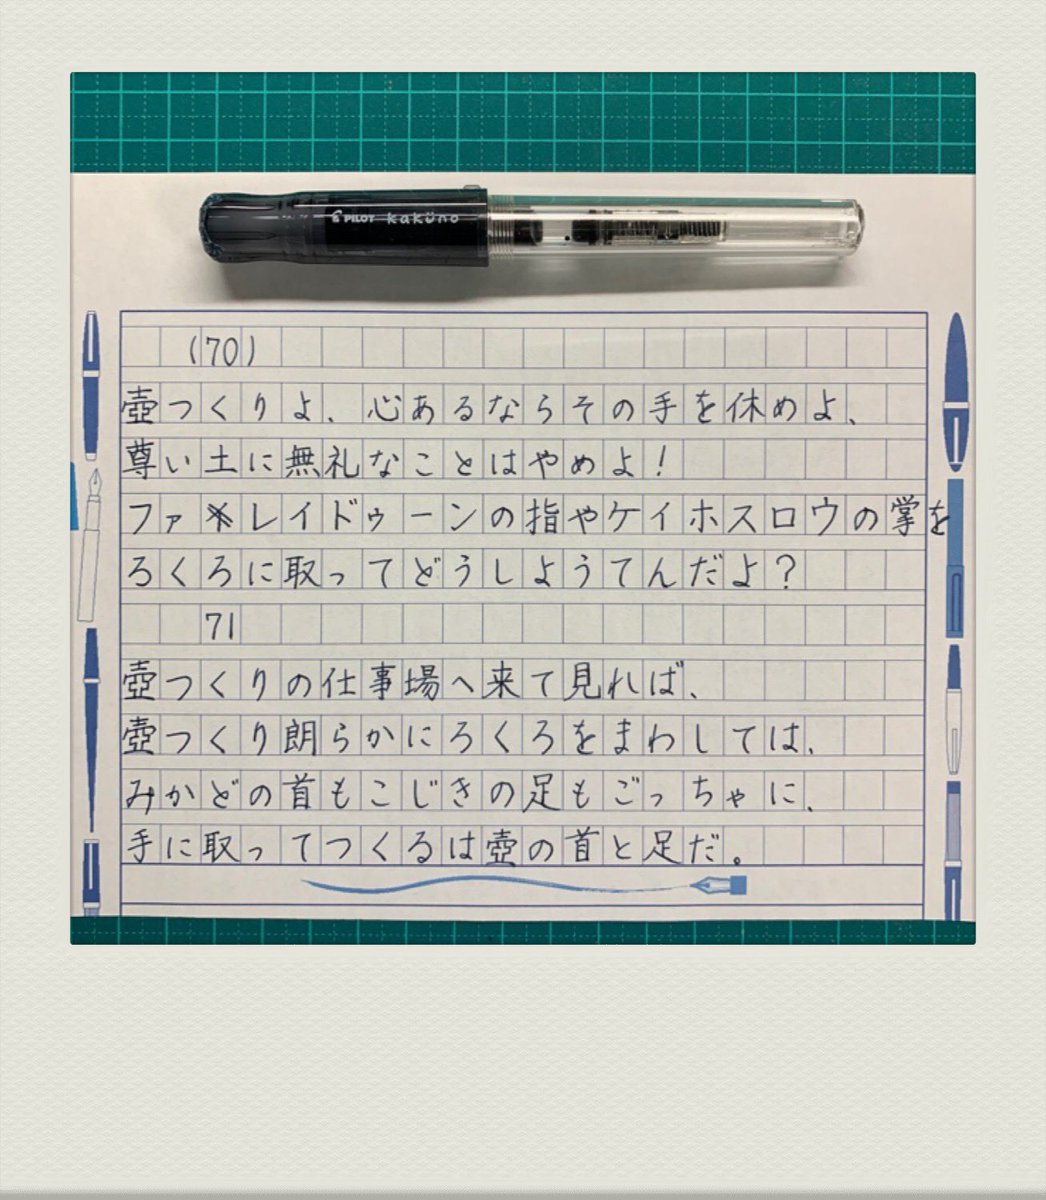 PILOT kaküno
(70)
壺つくりよ、心あるならその手を休めよ、
尊い土に無礼なことはやめよ!
ファレイドゥーンの指やケイホスロウの掌を
ろくろに取ってどうしようてんだよ?
71
壺つくりの仕事場へ来て見れば、
壺つくり朗らかにろくろをまわしては、
みかどの首もこじきの足もごっちゃに、
手に取ってつくるは壺の首と足だ。